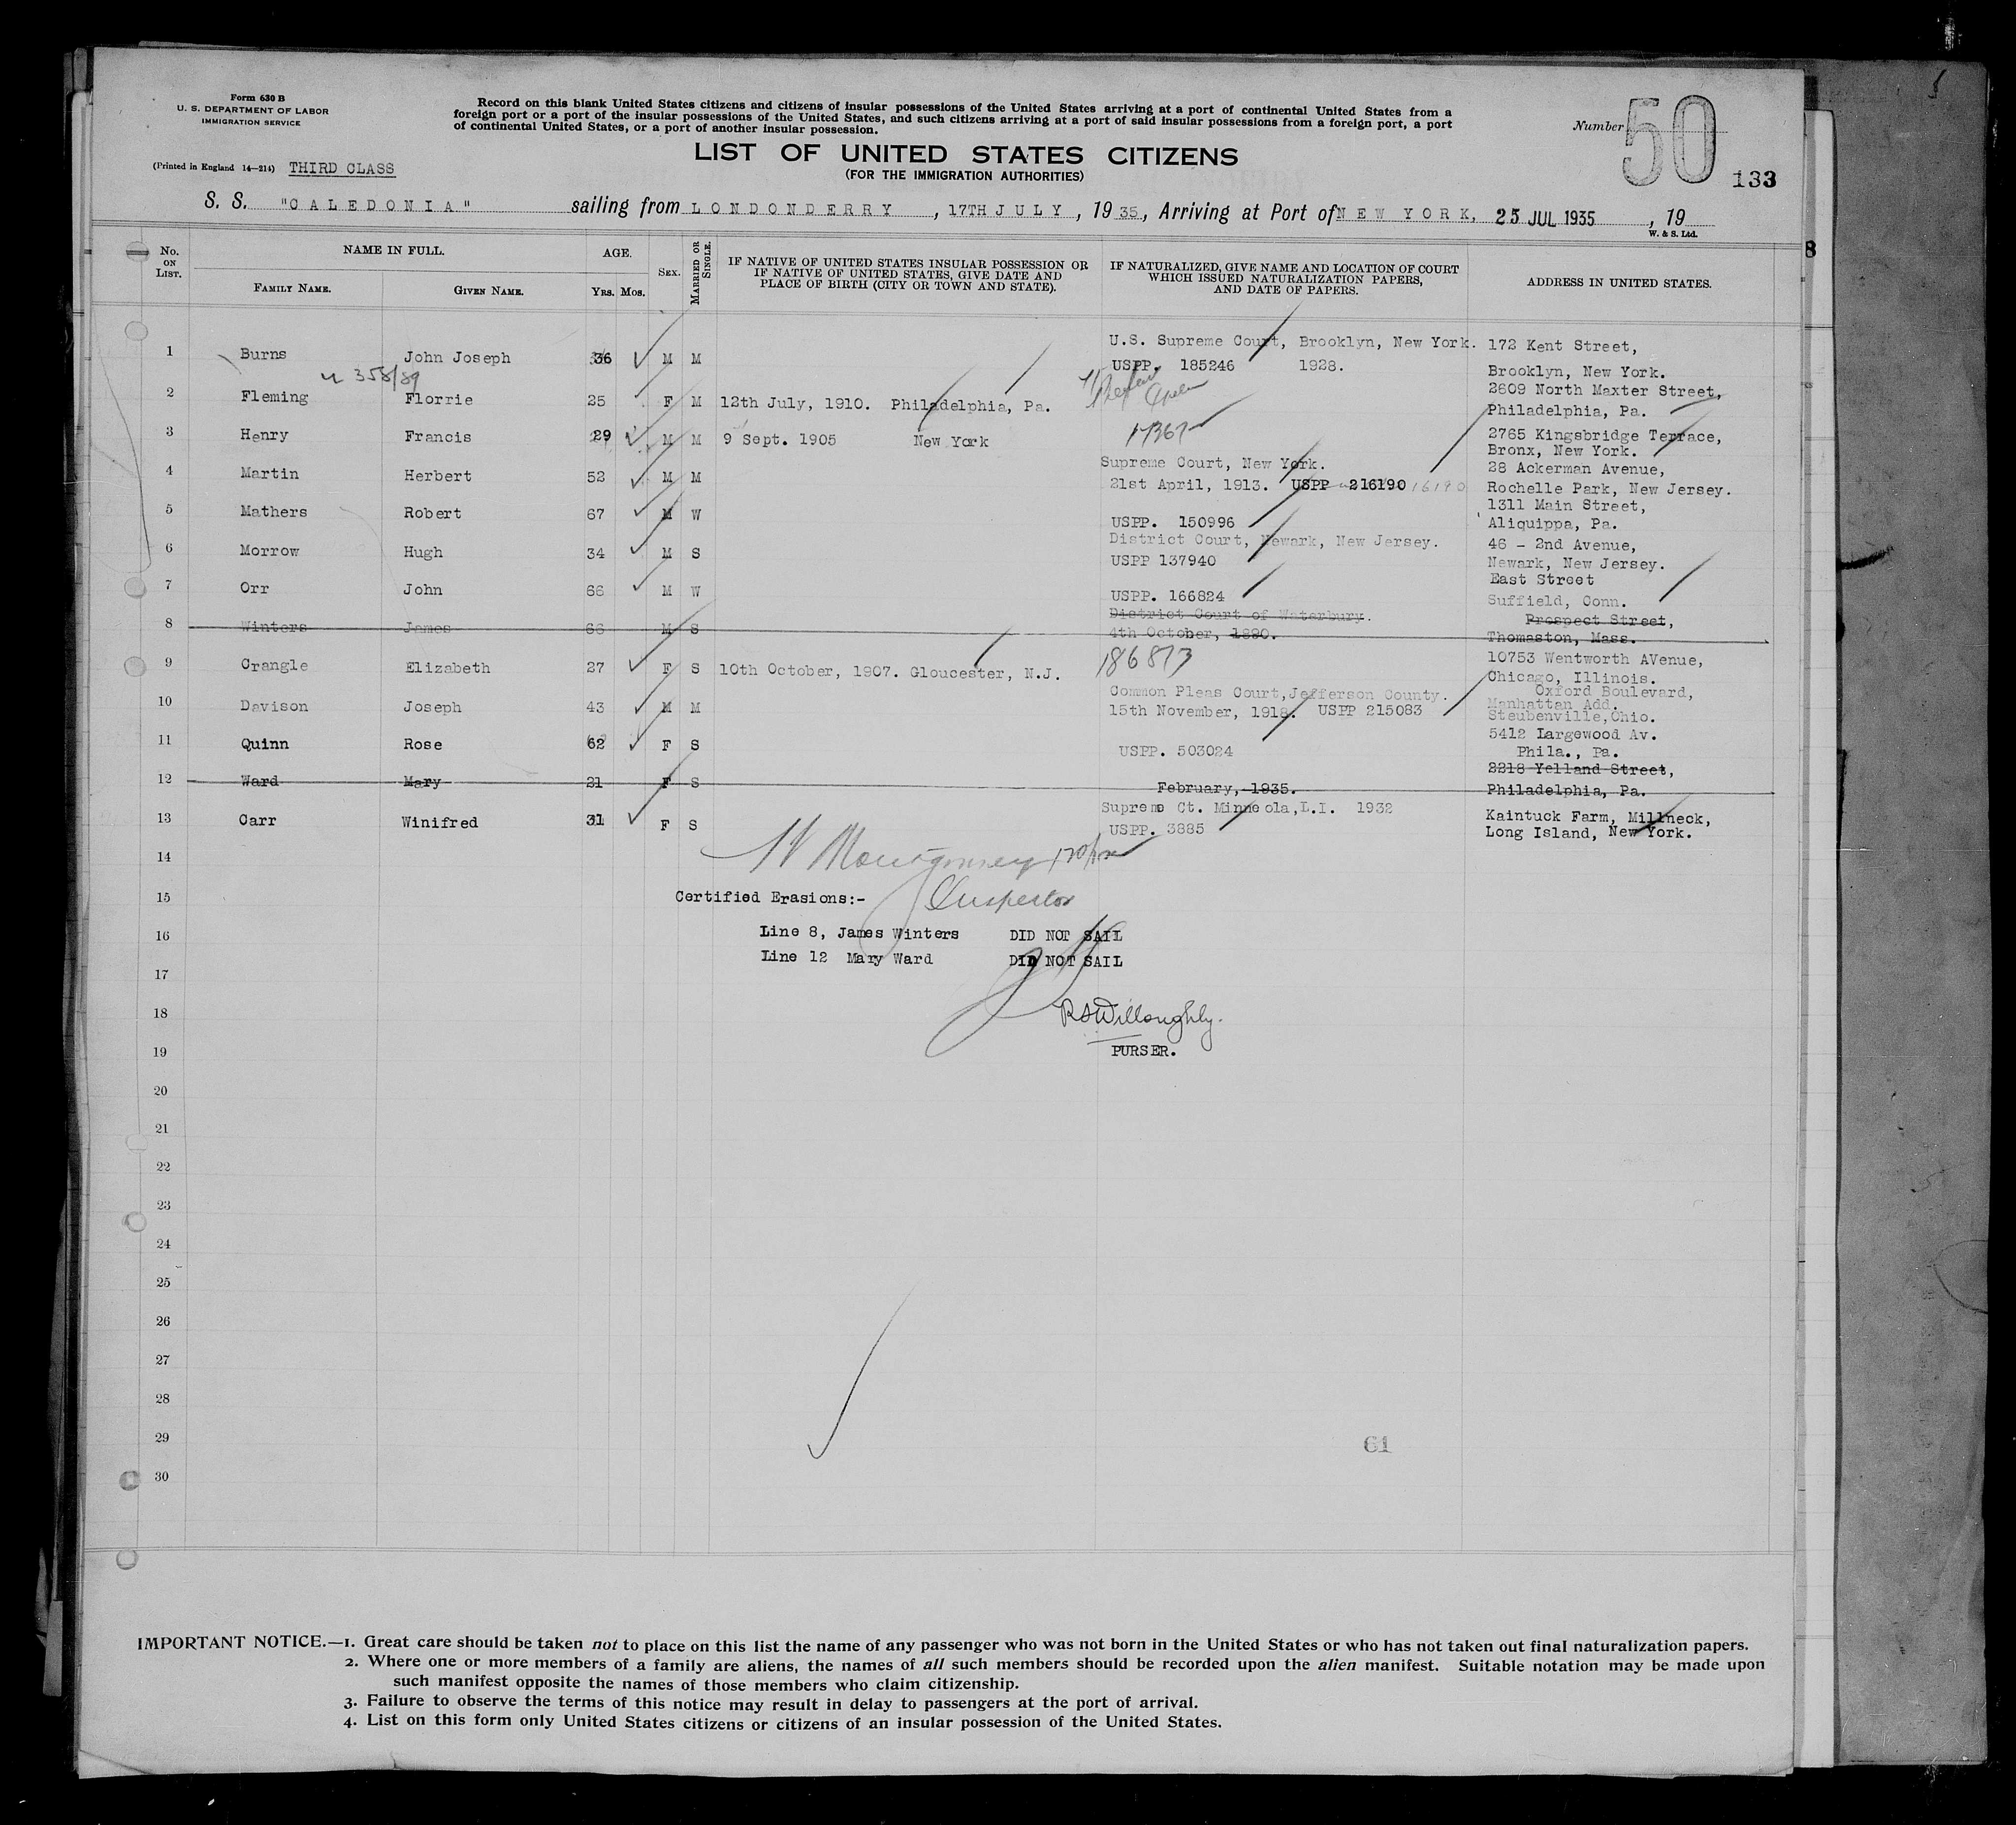 Form 630 B
U. S. DEPARTMENT OF LABOR
IMMIGRATION SERVICE
Record on this blank United States citizens and citizens of insular possessions of the United States arriving at a port of continental United States from a
foreign port or a port of the insular possessions of the United States, and such citizens arriving at a port of said insular possessions from a foreign port, a port
of continental United States, or a port of another insular possession.
Number 50
133
LIST OF UNITED STATES CITIZENS
(FOR THE IMMIGRATION AUTHORITIES)
(Printed in England 14—214) THIRD CLASS
S. S. "CALEDONIA" sailing from LONDONDERRY, 17TH JULY, 19 35, Arriving at Port of NEW YORK, 25 JUL 1935, 19
W. & S. Ltd.
8
No. ON LIST. NAME IN FULL. AGE. SEX. MARRIED OR SINGLE. IF NATIVE OF UNITED STATES INSULAR POSSESSION OR IF NATIVE OF UNITED STATES, GIVE DATE AND PLACE OF BIRTH (CITY OR TOWN AND STATE). IF NATURALIZED, GIVE NAME AND LOCATION OF COURT WHICH ISSUED NATURALIZATION PAPERS, AND DATE OF PAPERS. ADDRESS IN UNITED STATES.
FAMILY NAME. GIVEN NAME. YRS. MOS.
1 Burns John Joseph 36 M M U.S. Supreme Court, Brooklyn, New York. 172 Kent Street,
USPP. 185246 1928. Brooklyn, New York.
358/89
2 Fleming Florrie 25 F M 12th July, 1910. Philadelphia, Pa. 2609 North Maxter Street,
Philadelphia, Pa.
3 Henry Francis 29 M M 9 Sept. 1905 New York 17367 2765 Kingsbridge Terrace,
Bronx, New York.
4 Martin Herbert 52 M M Supreme Court, New York. 28 Ackerman Avenue,
21st April, 1913. USPP 216190 16190 Rochelle Park, New Jersey.
5 Mathers Robert 67 M W USPP. 150996 1311 Main Street,
Aliquippa, Pa.
6 Morrow Hugh 34 M S District Court, Newark, New Jersey. 46 - 2nd Avenue,
USPP 137940 Newark, New Jersey.
7 Orr John 66 M W USPP. 166824 East Street
Suffield, Conn.
8 Winters James 66 M S District Court of Waterbury. Prospect Street,
4th October, 1890. Thomaston, Mass.
9 Crangle Elizabeth 27 F S 10th October, 1907. Gloucester, N.J. 186873 10753 Wentworth AVenue,
Chicago, Illinois.
10 Davison Joseph 43 M M Common Pleas Court, Jefferson County. Oxford Boulevard,
15th November, 1918. USPP 215083 Manhattan Add.
Steubenville, Ohio.
11 Quinn Rose 62 F S USPP. 503024 5412 Largewood Av.
Phila., Pa.
12 Ward Mary 21 F S February, 1935. 2218 Yelland Street,
Philadelphia, Pa.
13 Carr Winifred 31 F S Supreme Ct. Minneola, L.I. 1932 Kaintuck Farm, Millneck,
USPP. 3885 Long Island, New York.
14 Montgomery
15 Certified Erasions:- Inspector
16 Line 8, James Winters DID NOT SAIL
Line 12 Mary Ward DID NOT SAIL
17
18 RSWilloughby.
19 PURSER.
20
21
22
23
24
25
26
27
28
29 61
30
IMPORTANT NOTICE.—1. Great care should be taken not to place on this list the name of any passenger who was not born in the United States or who has not taken out final naturalization papers.
2. Where one or more members of a family are aliens, the names of all such members should be recorded upon the alien manifest. Suitable notation may be made upon
such manifest opposite the names of those members who claim citizenship.
3. Failure to observe the terms of this notice may result in delay to passengers at the port of arrival.
4. List on this form only United States citizens or citizens of an insular possession of the United States.